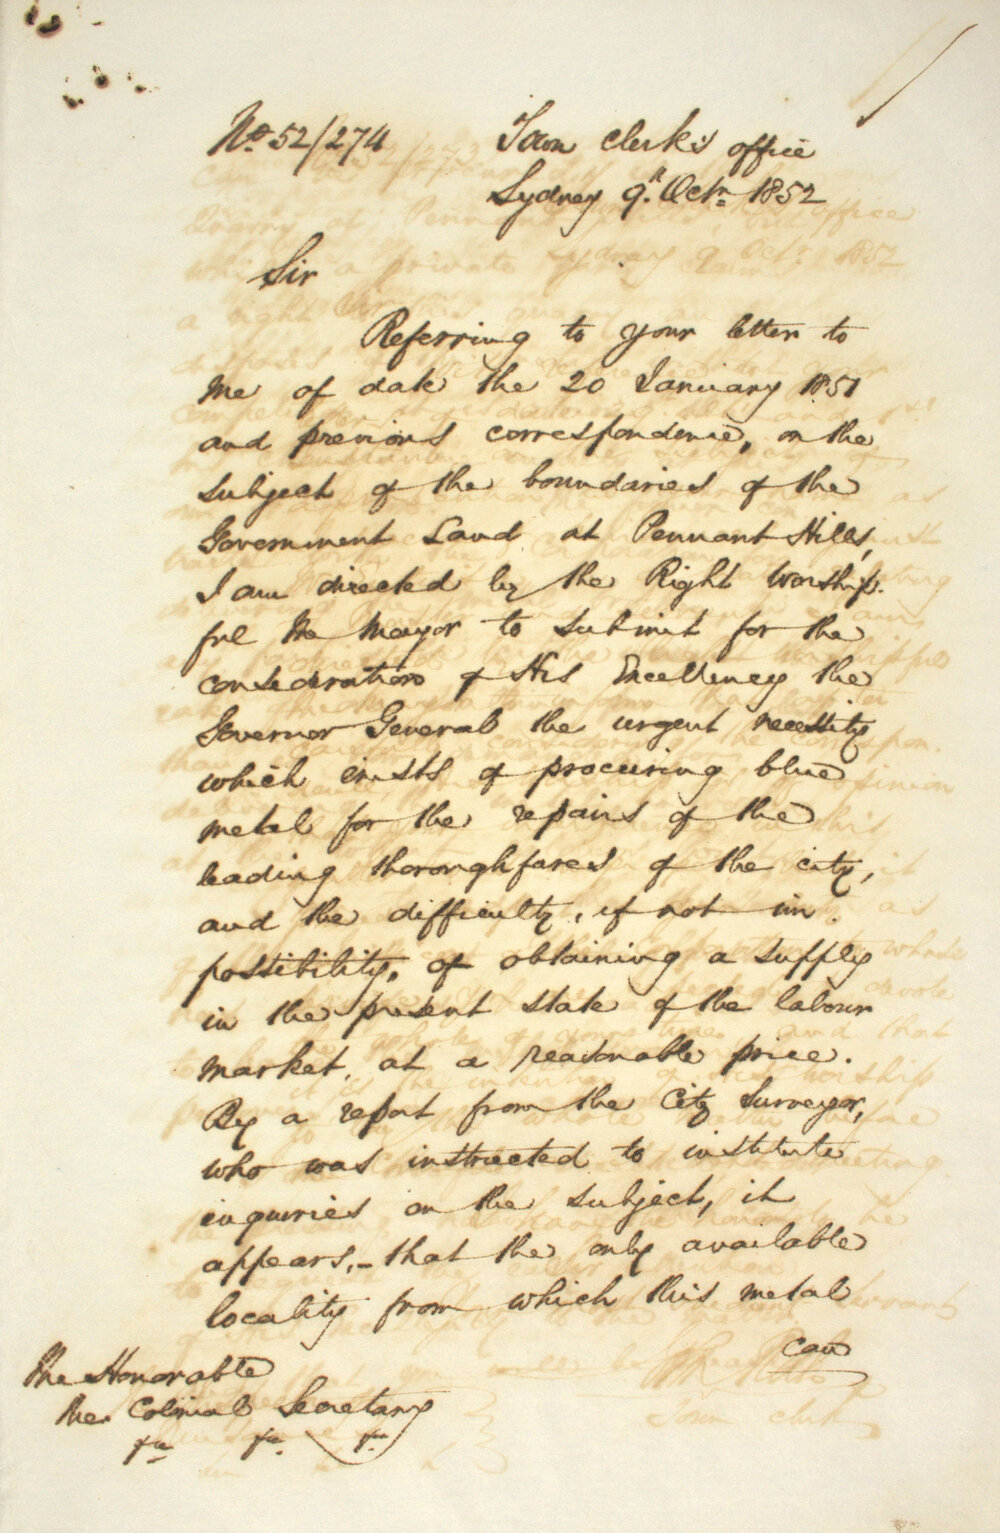 No. 52/274
Town Clerk's office
Sydney 9th Octr 1852
Sir
Referring to your letter to
me of date the 20 January 1851
and previous correspondence, on the
subject of the boundaries of the
Government Land at Pennant Hills,
I am directed by the Right Worship-
ful the Mayor to submit for the
consideration of His Excellency the
Governor General the urgent necessity
which exists of procuring blue
metal for the repairs of the
leading thoroughfares of the city,
and the difficulty, if not im-
possibility, of obtaining a supply
in the present state of the labour
market, at a reasonable price.
By a report from the City Surveyor,
who was instructed to institute
inquiries on the subject, it
appears,- that the only available
locality from which this metal
can
The Honorable
the Colonial Secretary
&c &c &c